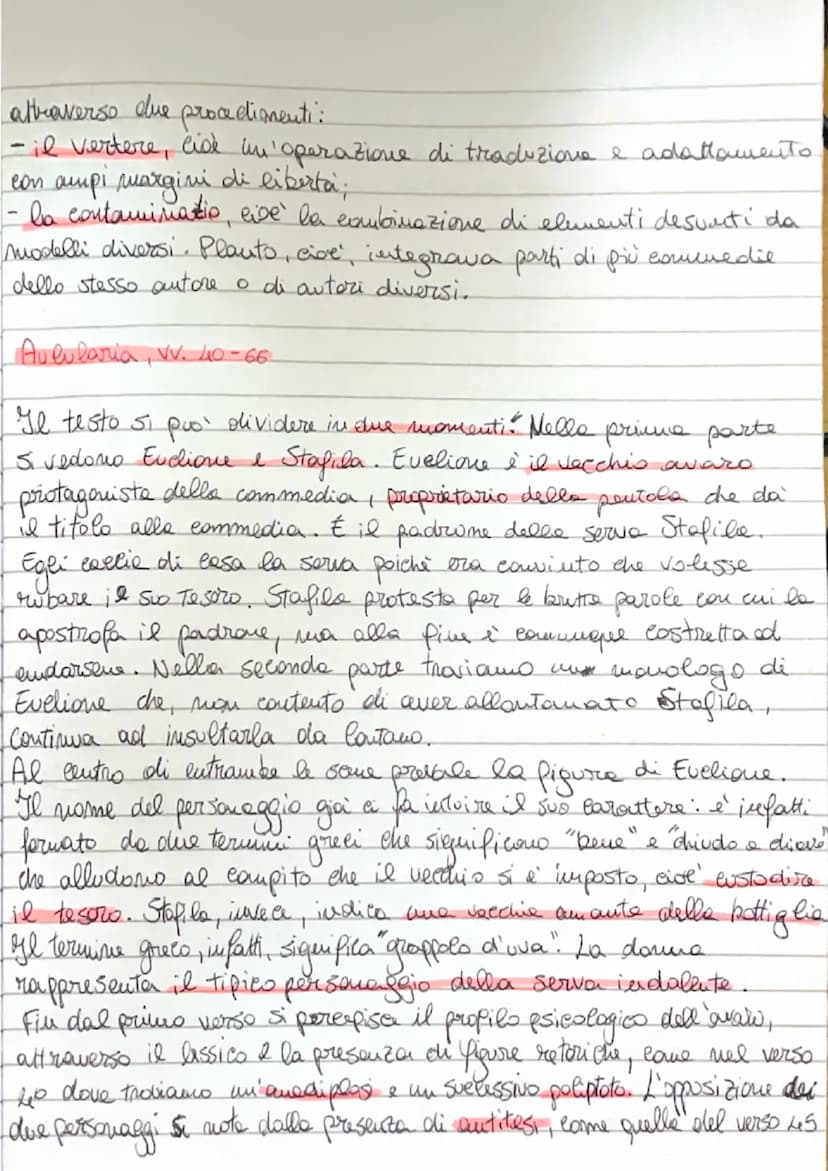 attraverso due procedimenti:
- il vertere, cioè un'operazione di traduzione e adattamento
con ampi margini di libertà;
- la contaminatio, cioè la combinazione di elementi desunti da
modelli diversi. Plauto, cioè, integrava parti di più commedie
dello stesso autore o di autori diversi.
Aulularia, vv. 40-66
Il testo si può dividere in due momenti. Nella prima parte
si vedono Euclione e Stafila. Euclione è il vecchio avaro
protagonista della commedia, proprietario della pentola che dà
il titolo alla commedia. È il padrone della serva Stafila.
Egli caccia di casa la serva poiché era convinto che volesse
rubare il suo tesoro. Stafila protesta per le brutte parole con cui la
apostrofa il padrone, ma alla fine è comunque costretta ad
andarsene. Nella seconda parte troviamo un monologo di
Euclione che, non contento di aver allontanato Stafila,
continua ad insultarla da lontano.
Al centro di entrambe le scene prevale la figura di Euclione.
Il nome del personaggio già ci fa intuire il suo carattere: è infatti
formato da due termini greci che significano "bene" e "chiudo a chiave"
che alludono al compito che il vecchio si è imposto, cioè custodire
il tesoro. Stafila, invece, indica una vecchia amante della bottiglia.
Il termine greco, infatti, significa "grappolo d'uva". La donna
rappresenta il tipico personaggio della serva indolente.
Fin dal primo verso si percepisce il profilo psicologico dell'avaro,
attraverso il lessico e la presenza di figure retoriche, come nel verso
40 dove troviamo un'anadiplosi e un successivo poliptoto. L'opposizione dei
due personaggi si nota dalla presenza di antitesi, come quella del verso 45